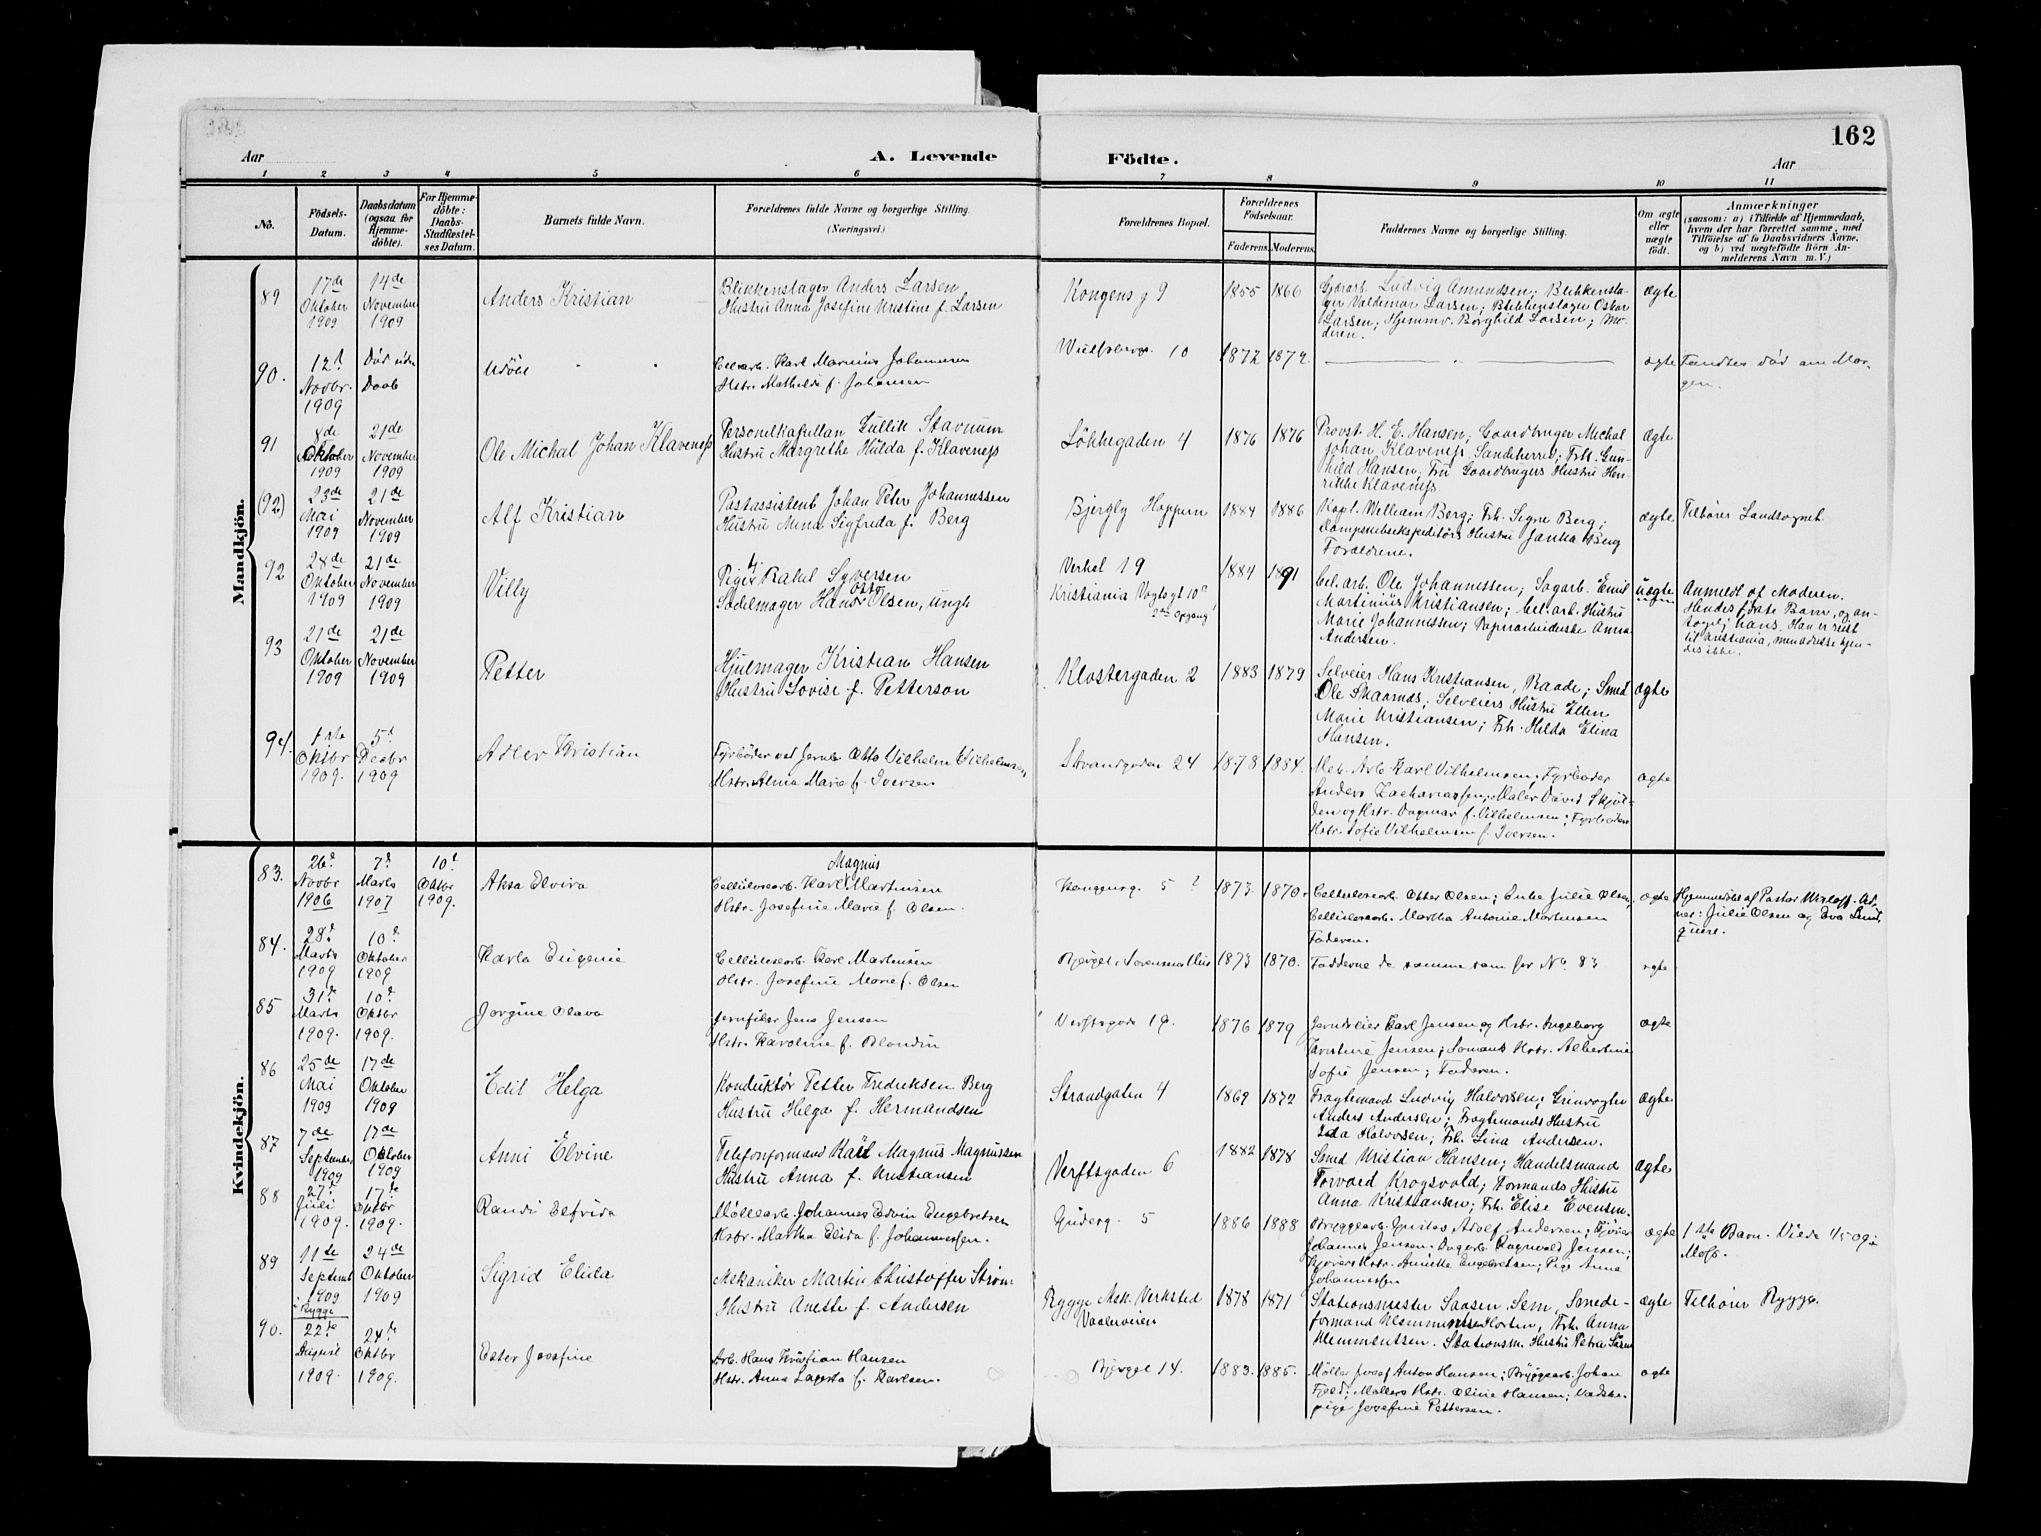 162
Aar
A. Levende
Födte.
Aar
1 2 3 4 5 6 7 8 9 10 11
No.
Födsels-
Datum.
Daabsdatum
(ogsaa for
Hjemme-
döbte).
For Hjemme-
döbte:
Daabs-
Stadfæstel-
ses Datum.
Barnets fulde Navn.
Forældrenes fulde Navne og borgerlige Stilling.
(Næringsvei.)
Forældrenes Bopæl.
Forældrenes
Födselsaar.
Faderens. Moderens.
Faddernes Navne og borgerlige Stilling.
Om ægte
eller
uægte
födt.
Anmærkninger
(saasom: a) i Tilfælde af Hjemmedaab,
hvem der har forrettet samme, med
Tilföielse af to Daabsvidners Navne,
og b) ved uægtefödte Börn An-
melderens Navn m. V.)
Mandkjön.
89
17de
Oktober
1909
14de
November
1909
Anders Kristian
Blikkenslager Anders Larsen
Hustru Anna Josefine Kristine f. Larsen
Kongens g 9
1855 1866
Ludvig Amundsen; Blikkensla-
ger Valdemar Larsen; Blikkenslager Oskar
Larsen; Hjemmv. Borghild Larsen; Mo-
deren.
ægte
90.
12t
Novbr.
1909
Död uden
Daab
Udöbt
Cel.arb. Karl Marinius Johannesen
Hstr. Mathilde f. Johansen
10
1872 1872.
ægte
Fandtes död om Mor-
gen.
91
8de
Oktober
1909
21de
November
1909
Ole Michal Johan Klaveness
Personelkapellan Gullik Stavnum
Hustru Margrethe Hulda f. Klaveness
Lökkegaden 4
1876 1876
Provst H. E. Hansen; Gaardbruger Michal
Johan Klaveness, Sandeherred; Frk. Gun-
hild Hansen. Fru Gaardbrugers Hustru Hen-
rikke Klaveness.
Ægte
(92)
23de
Mai
1909
21de
November
1909
Alf Kristian
Postassistent Johan Peter Johannessen
Hustru Mina Sigfreda f. Berg
Bjergly Hoppern
1884 1886
Kapt. William Berg; Frk. Signe Berg;
Dampskibsekspeditörs Hustru Janka Berg
Forældrene.
ægte
Tilhörer Landsognet.
92
28de
Oktober
1909
21de
November
1909
Villy
Pige Rakel Syversen
Sadelmager Hans Otto Olsen, ungk
Verket 19
Kristiania Vogtsgt 10c
2den Opgang
1884 1891
Cel.arb. Ole Johannessen; Sagarb. Emil
Martinius Kristiansen; Cel.arb. Hustru
Marie Johannessen; Papirarbeiderske Anna
Andersen.
uægte
Anmeldt af Moderen.
Hendes første Barn, og an-
tagelig hans. Han er reist
til Kristiania, men adresse kjen-
des ikke.
93
21de
Oktober
1909
21de
November
1909
Petter
Hjulmager Kristian Hansen
Hustru Lovise f. Petterson
Klostergaden 2
1883 1879
Selveier Hans Kristiansen, Raade; Smed
Ole Skaarnæs; Selveiers Hustru Ellen
Marie Kristiansen; Frk. Hilda Elina
Hansen.
ægte
94.
1ste
Oktbr
1909.
5t
Decbr
1909
Adler Kristian
Fyrböder ved Jernb. Otto Vilhelm Vilhelmsen
Hstr. Alma Marie f. Iversen
Strandgaden 24
1878 1884.
Mek. Arb. Karl Vilhelmsen; Fyrböder
Anders Zachariassen; Maler David Skjöl-
den og Hstr. Dagmar f. Vilhelmsen; Fyrböders
Hstr. Sofie Vilhelmsen f. Iversen.
ægte
Kvindekjön.
83.
26de
Novbr
1906
7de
Marts
1907
10de
Oktbr
1909.
Aksa Elvira
Cellulosearb. Karl Magnus Martinsen
Hstr. Josefine Marie f. Olsen.
5
1873. 1870.
Cellulosearb. Otter Olsen; Enke Julie Olsen,
Cellulosearb. Martha Antonie Martinsen
Faderen.
ægte
Hjemmedöbt af Pastor
Julie Olsen og Eva
84.
28de
Marts
1909
10de
Oktober
1909
Karla Eugenie
Cellulosearb. Karl Martinsen
Hstr. Josefine Marie f. Olsen
1873 1870.
Fadderne de samme som for No. 83
ægte
85
31te
Marts
1909.
10de
Oktbr
1909.
Jorgine Olava
Jernfiler Jens Jensen
Hstr. Karoline f. Blondin
Verftsgade 19.
1876 1879
Karl Jensen og Hstr. Ingeborg
Kristine Jensen; Somands Hstr. Albertine
Sofie Jensen; Faderen.
ægte
86
25de
Mai
1909
17de
Oktober
1909
Edit Helga
Konduktör Petter Fredriksen Berg
Hustru Helga f. Hermandsen
Strandgaten 4
1869 1872
Fragtemand Ludvig Halvorsen; Grinvogter
Anders Andersen; Fragtemands Hustru
Ida Halvorsen; Frk. Lina Andersen.
Ægte
87
7de
September
1909
17de
Oktober
1909
Anni Elvine
Telefonformand Karl Magnus Magnussen
Hustru Anna f. Kristiansen
Verftsgaden 6
1882 1878
Smed Kristian Hansen; Handelsmand
Torvard Krogsvold; Formands Hustru
Anna Kristiansen; Frk. Elise Evensen.
ægte
88
27de
Juli
1909.
17de
Oktbr
1909.
Randi Elfrida
Möllearb. Johannes Edvin Engebretsen
Hstr. Martha Elida f. Johannessen.
Guderg. 5
1886 1888
Bryggearb. Gustav Adolf Andersen; Kjörer
Johannes Jensen; Dagarb. Ragnvald Jensen;
Kjörers Hstr. Annette Engebretsen; Pige Anna
Johannessen
ægte
1ste Barn. Viede 4/5 09 i
Moss.
89
11te
Septemb
1909
i Rygge
24de
Oktober
1909
Sigrid Elida
Mekaniker Martin Christoffer Ström
Hustru Anette f. Andersen
Rygge Mek. Verksted
Vaalerveien
1878 1871
Stationsmester Saasen, Sem, Smede-
formand Klemmentsen Horten, Frk. Anna
Klemmentsen. Stationsm. Hustru Petra Saasen
ægte
Tilhörer Rygge.
90.
22de
August
1909.
24de
Oktbr
1909.
Ester Josefine
Arb. Hans Kristian Hansen
Hstr. Anna Lagerta f. Karlsen.
Bjerget 14.
1883. 1885.
Möller Josef Anton Hansen; Bryggearb. Johan
Fjeld; Möllers Hstr. Oline Hansen;
pige Josefine Pettersen.
ægte